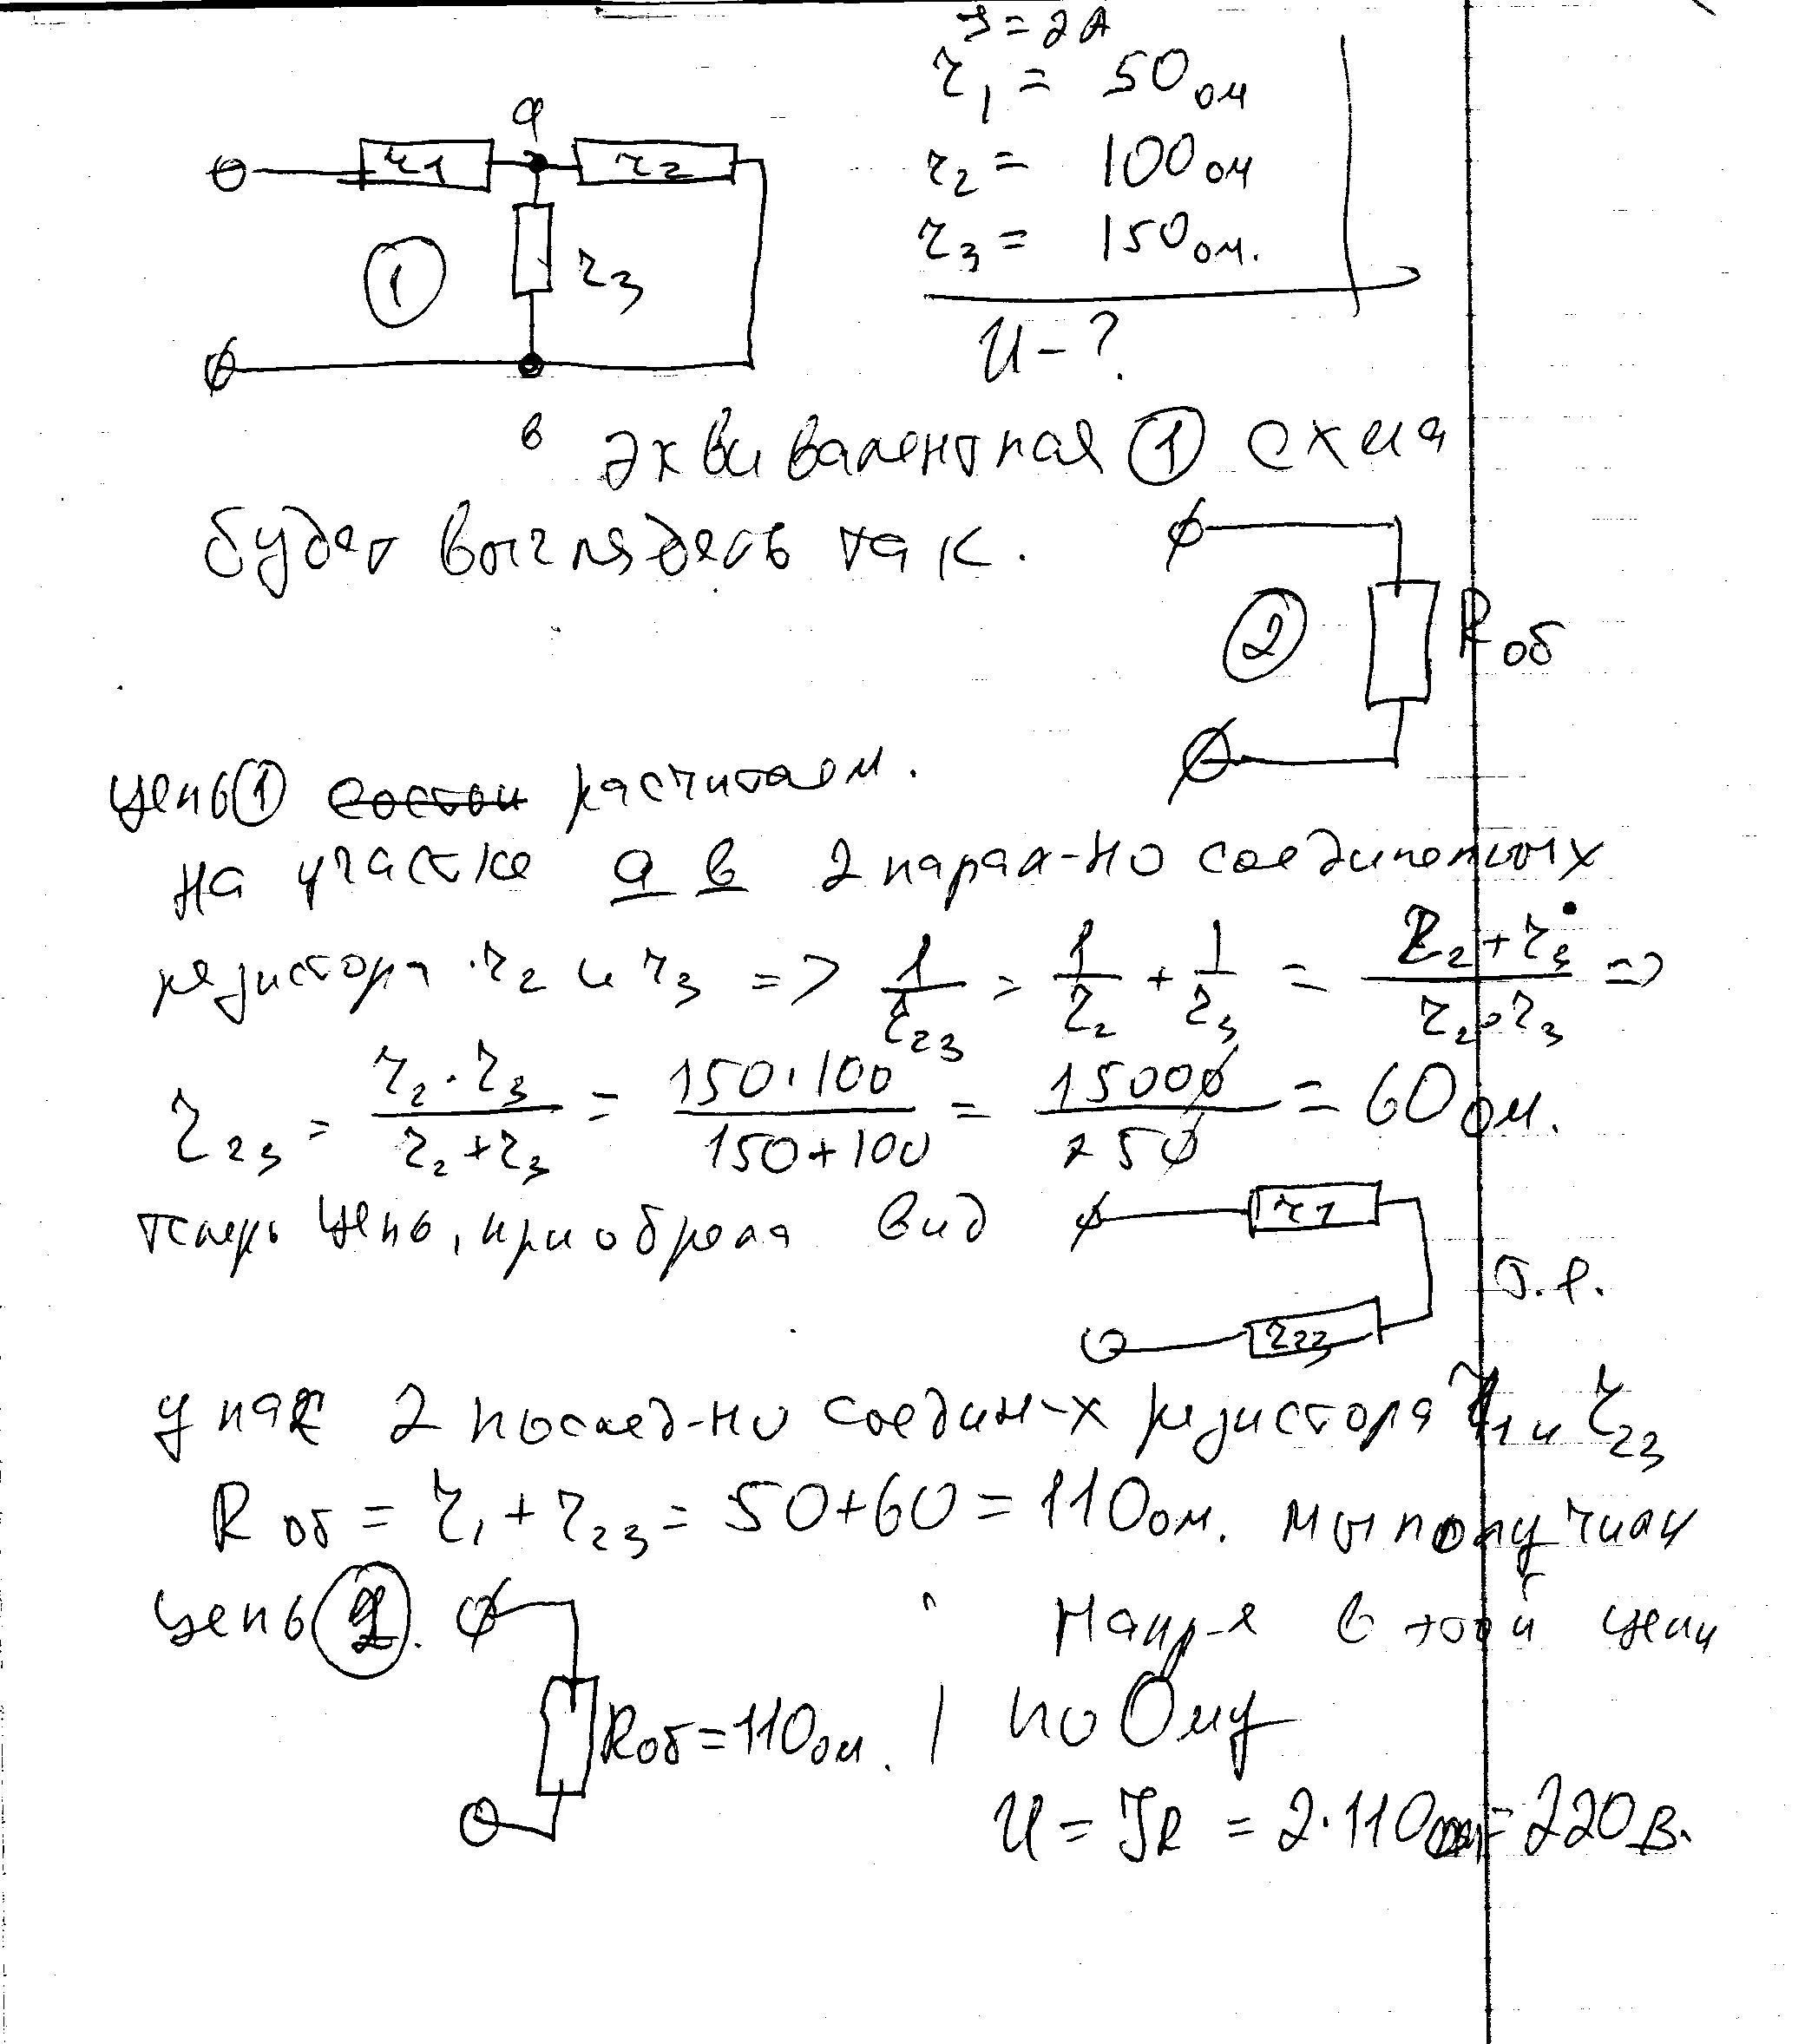 I = 2А
r1 = 50 ом
r2 = 100 ом
r3 = 150 ом.
U - ?
а
r1
r2
r3
1
в
эквивалентная 1 схема
будет выглядеть так.
2
Rоб
цепь 1 состои расчитаем.
на участке а в 2 парал-но соединенных
резистора r2 и r3 => 1/r23 = 1/r2 + 1/r3 = r2+r3/r2·r3 =>
r23 = r2·r3/r2+r3 = 150·100/150+100 = 15000/250 = 60 ом.
теперь цепь, приобрела вид
r1
r23
т.е.
у нас 2 послед-но соедин-х резистора r1 и r23
Rоб = r1 + r23 = 50+60 = 110 ом. мы получили
цепь 2.
Rоб = 110 ом.
Напр-е в этой цепи
по Ому
U = IR = 2·110 ом = 220 В.